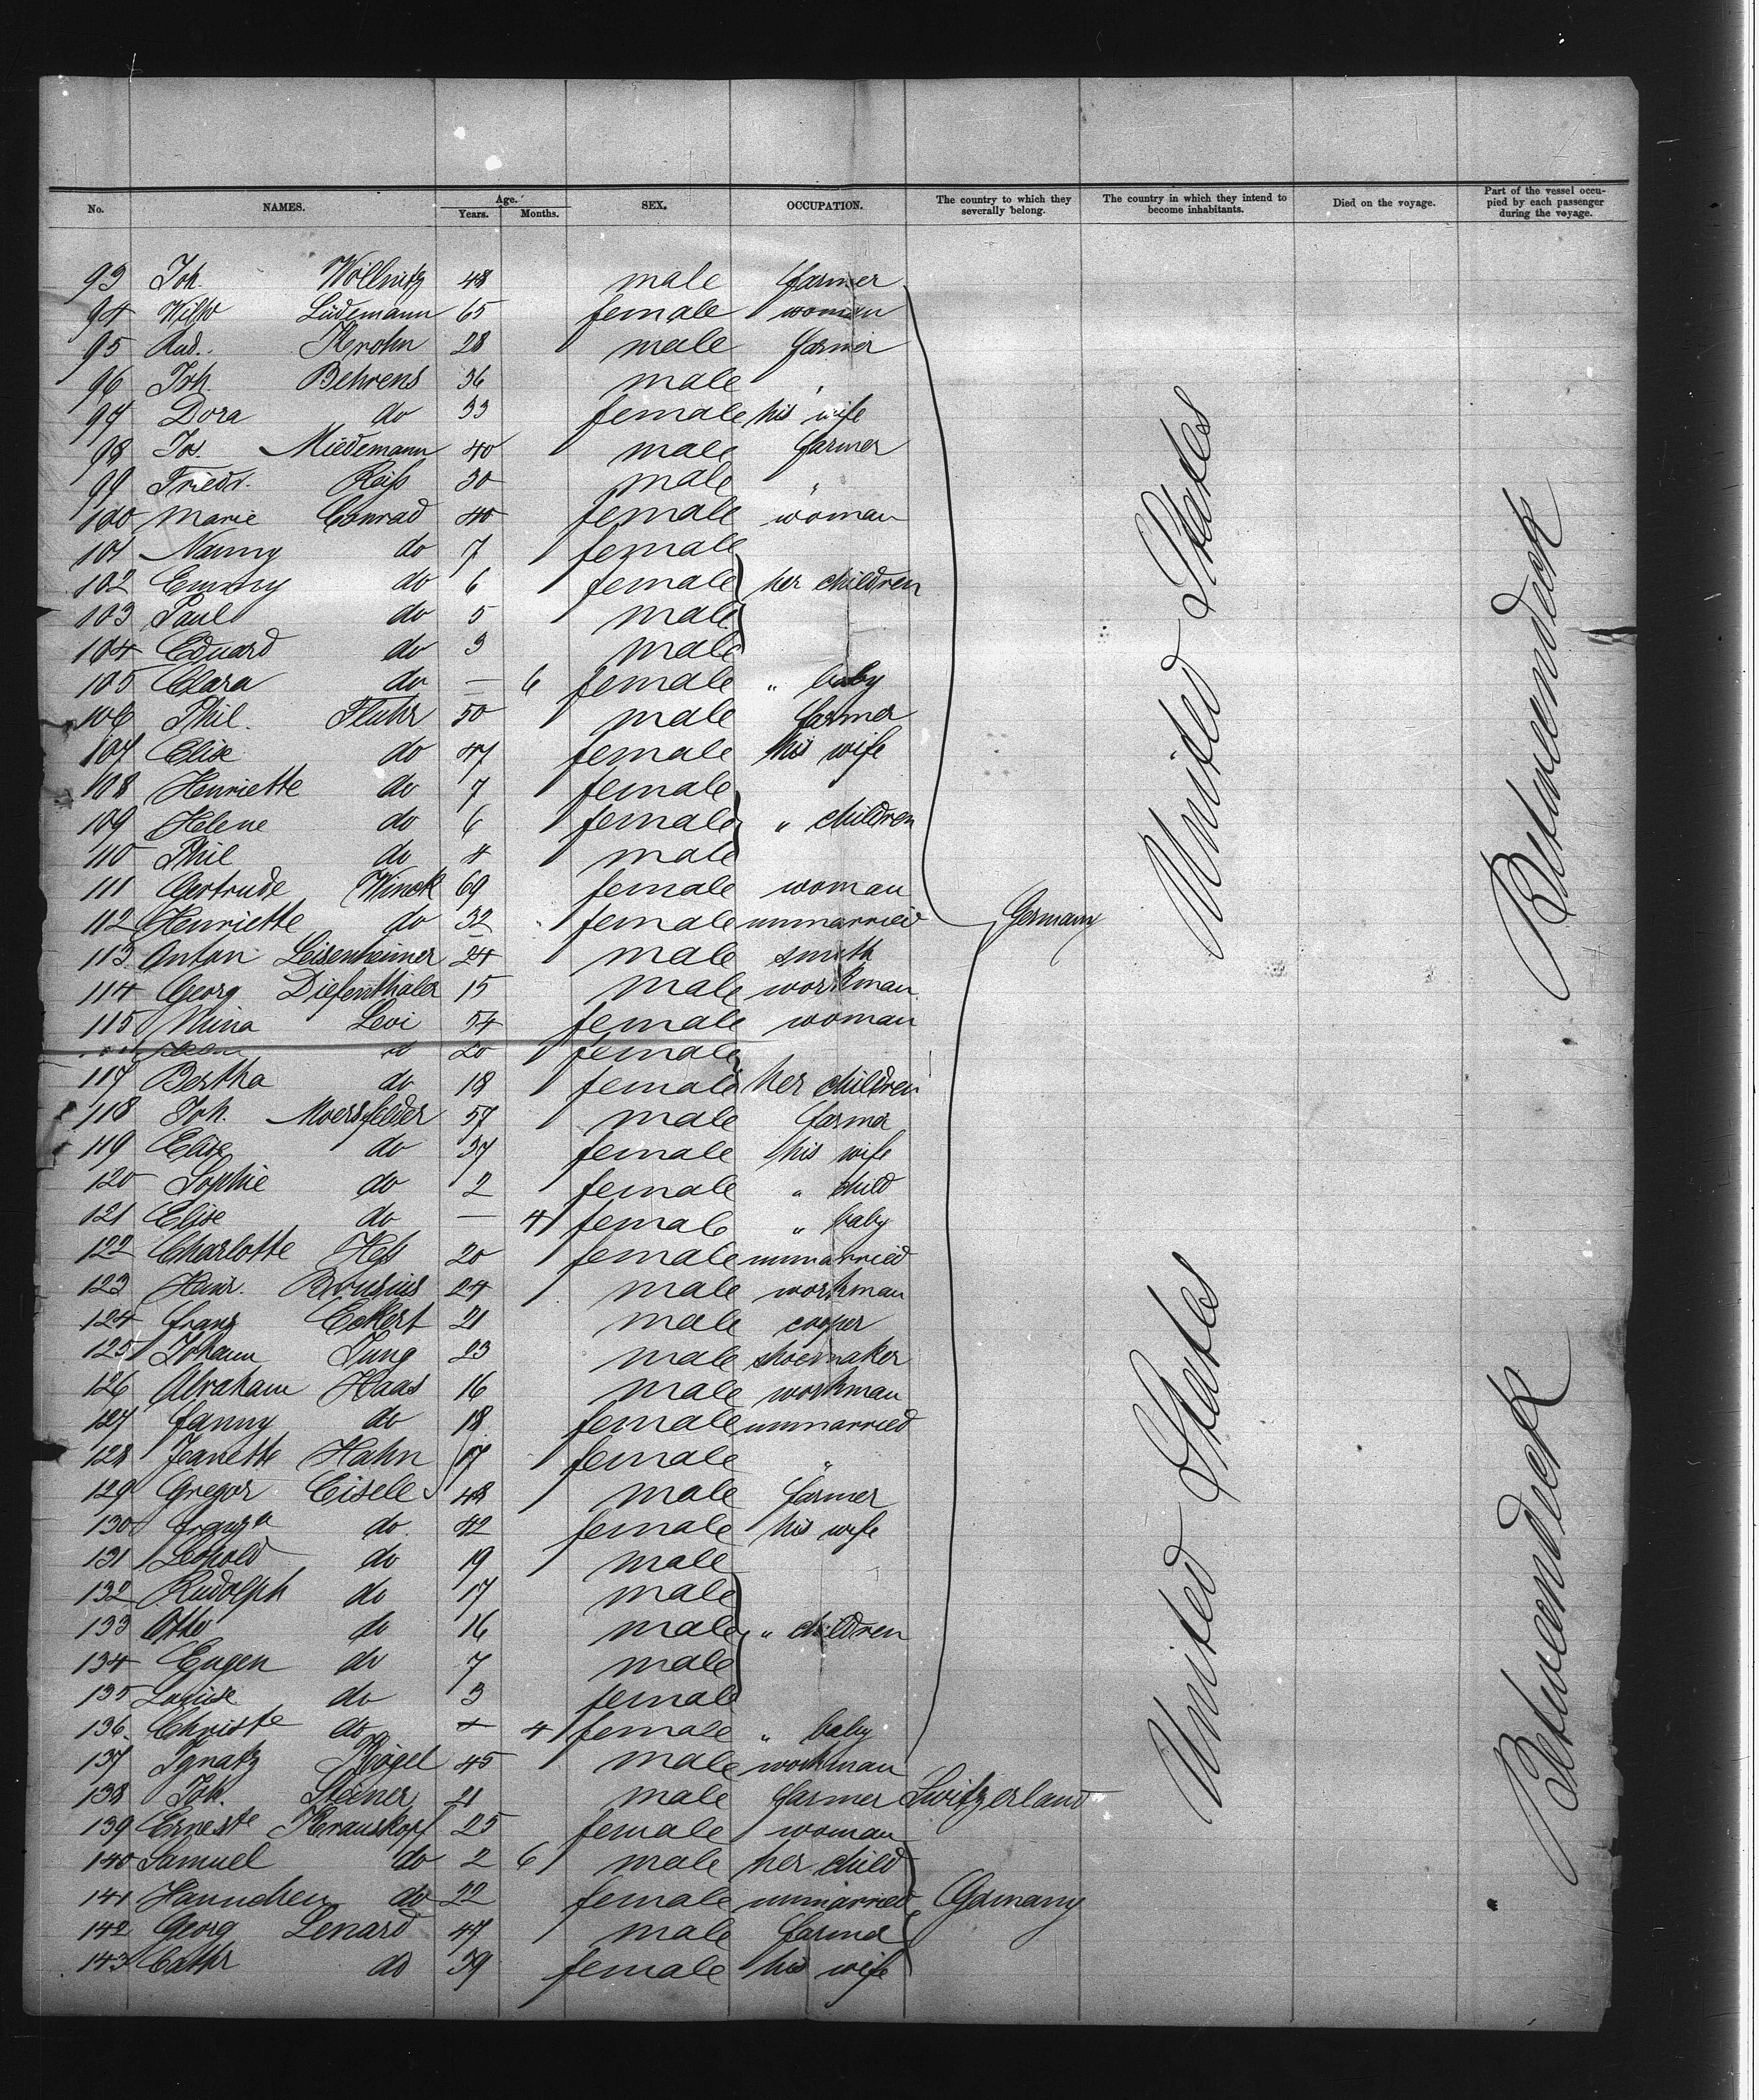 No. NAMES. Age. Years. Months. SEX. OCCUPATION. The country to which they severally belong. The country in which they intend to become inhabitants. Died on the voyage. Part of the vessel occupied by each passenger during the voyage.
93 Joh. Wöllnitz 48 male farmer
94 Wilh Lüdemann 65 female woman
95 Rud. Krohn 28 male farmer
96 Joh. Behrens 36 male "
97 Dora do 33 female his wife
98 Jos. Miedemann 40 male farmer
99 Friedr. Reiß 30 male "
100 Marie Conrad 40 female woman
101 Nanny do 7 female
102 Emmy do 6 female her children
103 Paul do 5 male
104 Eduard do 3 male
105 Clara do — 6 female " baby
106 Phil. Fluhr 50 male farmer
107 Elise do 47 female his wife
108 Henriette do 7 female
109 Helene do 6 female " children
110 Phil do 4 male
111 Gertrude Winck 69 female woman
112 Henriette do 32 female unmarried Germany
113 Anton Leisenheimer 24 male smith
114 Georg Diefenthäler 15 male workman
115 Mina Levi 54 female woman
do 20 female
117 Bertha do 18 female her children
118 Joh. Moersfelder 57 male farmer
119 Elise do 37 female his wife
120 Sophie do 2 female " child
121 Elise do — 4 female " baby
122 Charlotte Heß 20 female unmarried
123 Heinr. Brusius 24 male workman
124 Franz Eckert 21 male cooper
125 Johann Jung 23 male shoemaker
126 Abraham Haas 16 male workman
127 Fanny do 18 female unmarried
128 Jeanette Hahn 17 female "
129 Gregor Eisele 48 male farmer
130 Franza do. 42 female his wife
131 Leopold do 19 male
132 Rudolph do 17 male
133 Otto do 16 male " children
134 Eugen do 7 male
135 Louise do 3 female
136. Christe do — 4 female " baby
137 Ignatz Kögel 45 male workman
138 Joh. Steiner 21 male farmer Switzerland
139 Erneste Krauskopf 25 female woman
140 Samuel do 2 6 male her child
141 Hannchen do 22 female unmarried Germany
142 Georg Lenard 47 male farmer
143 Cathr do 39 female his wife
United States
United States
Betweendeck
Betweendeck